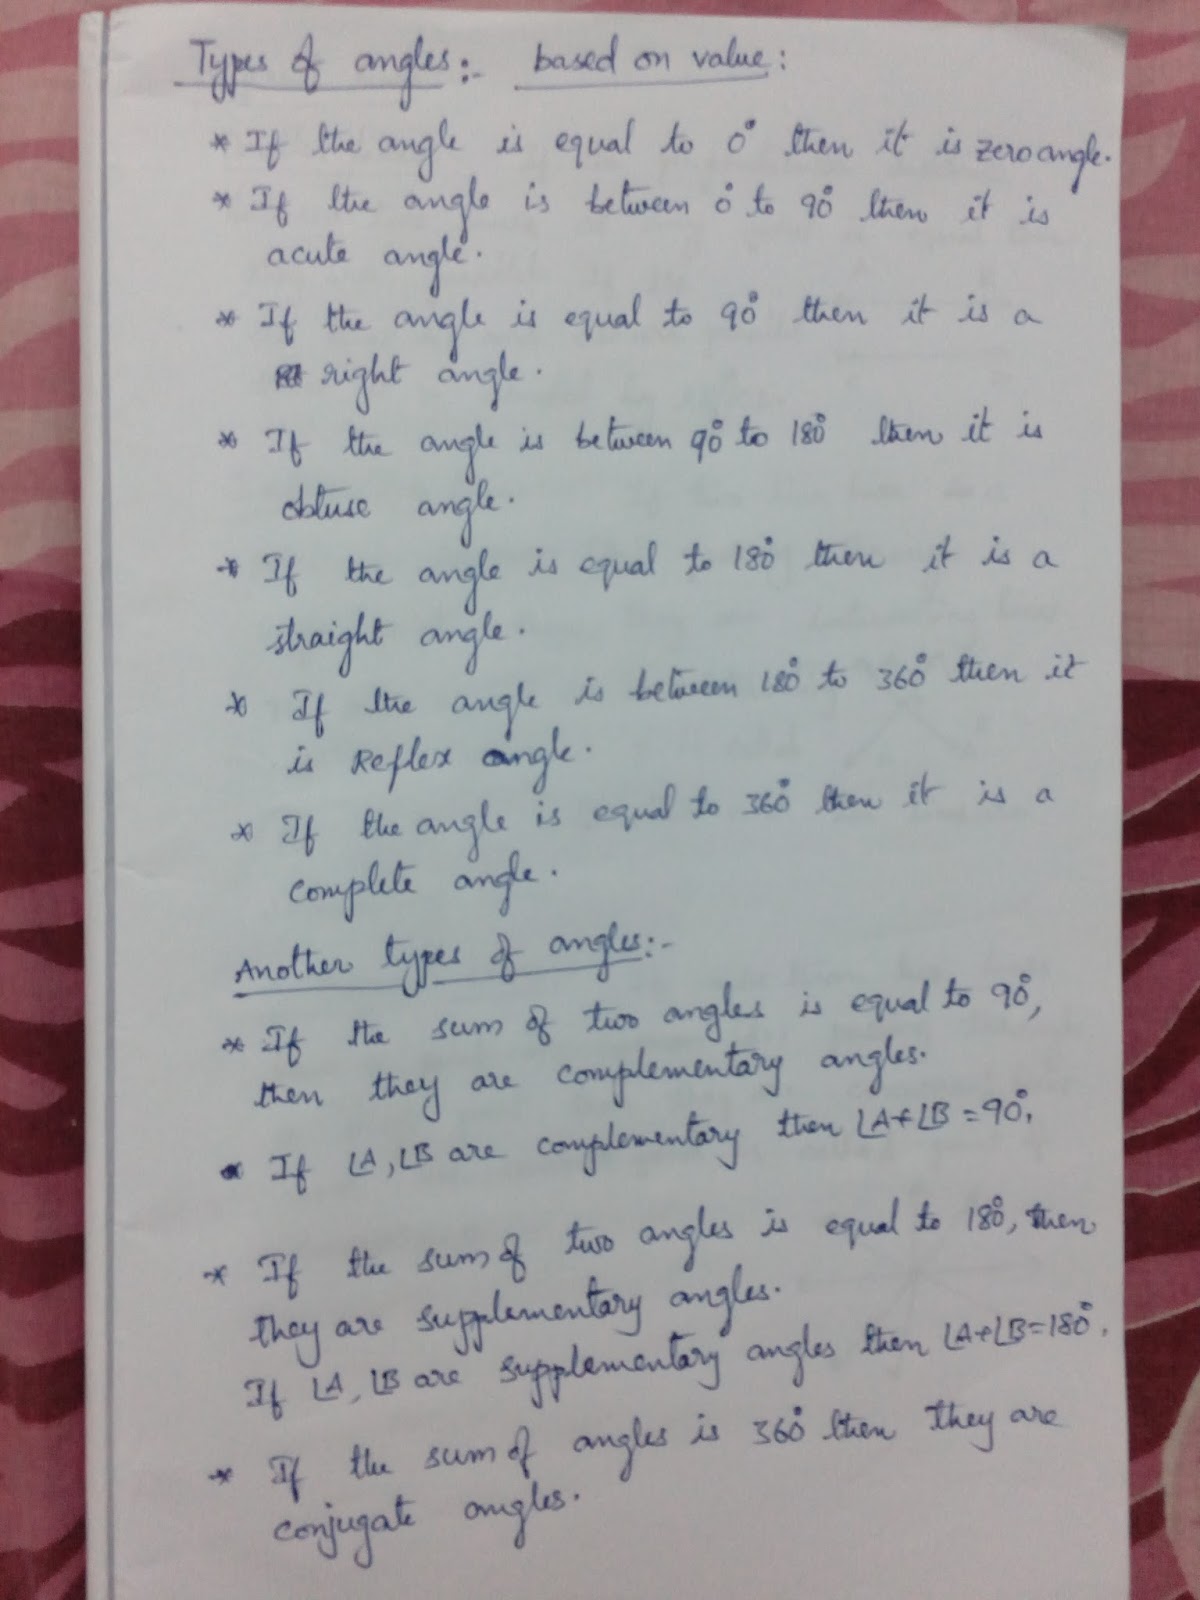 Types of angles:- based on value:
* If the angle is equal to 0° then it is zero angle.
* If the angle is between 0° to 90° then it is
acute angle.
* If the angle is equal to 90° then it is a
right angle.
* If the angle is between 90° to 180° then it is
obtuse angle.
* If the angle is equal to 180° then it is a
straight angle.
* If the angle is between 180° to 360° then it
is Reflex angle.
* If the angle is equal to 360° then it is a
complete angle.
Another types of angles:-
* If the sum of two angles is equal to 90°,
then they are complementary angles.
* If ∠A, ∠B are complementary then ∠A+∠B=90°.
* If the sum of two angles is equal to 180°, then
they are supplementary angles.
If ∠A, ∠B are supplementary angles then ∠A+∠B=180°.
* If the sum of angles is 360° then they are
conjugate angles.